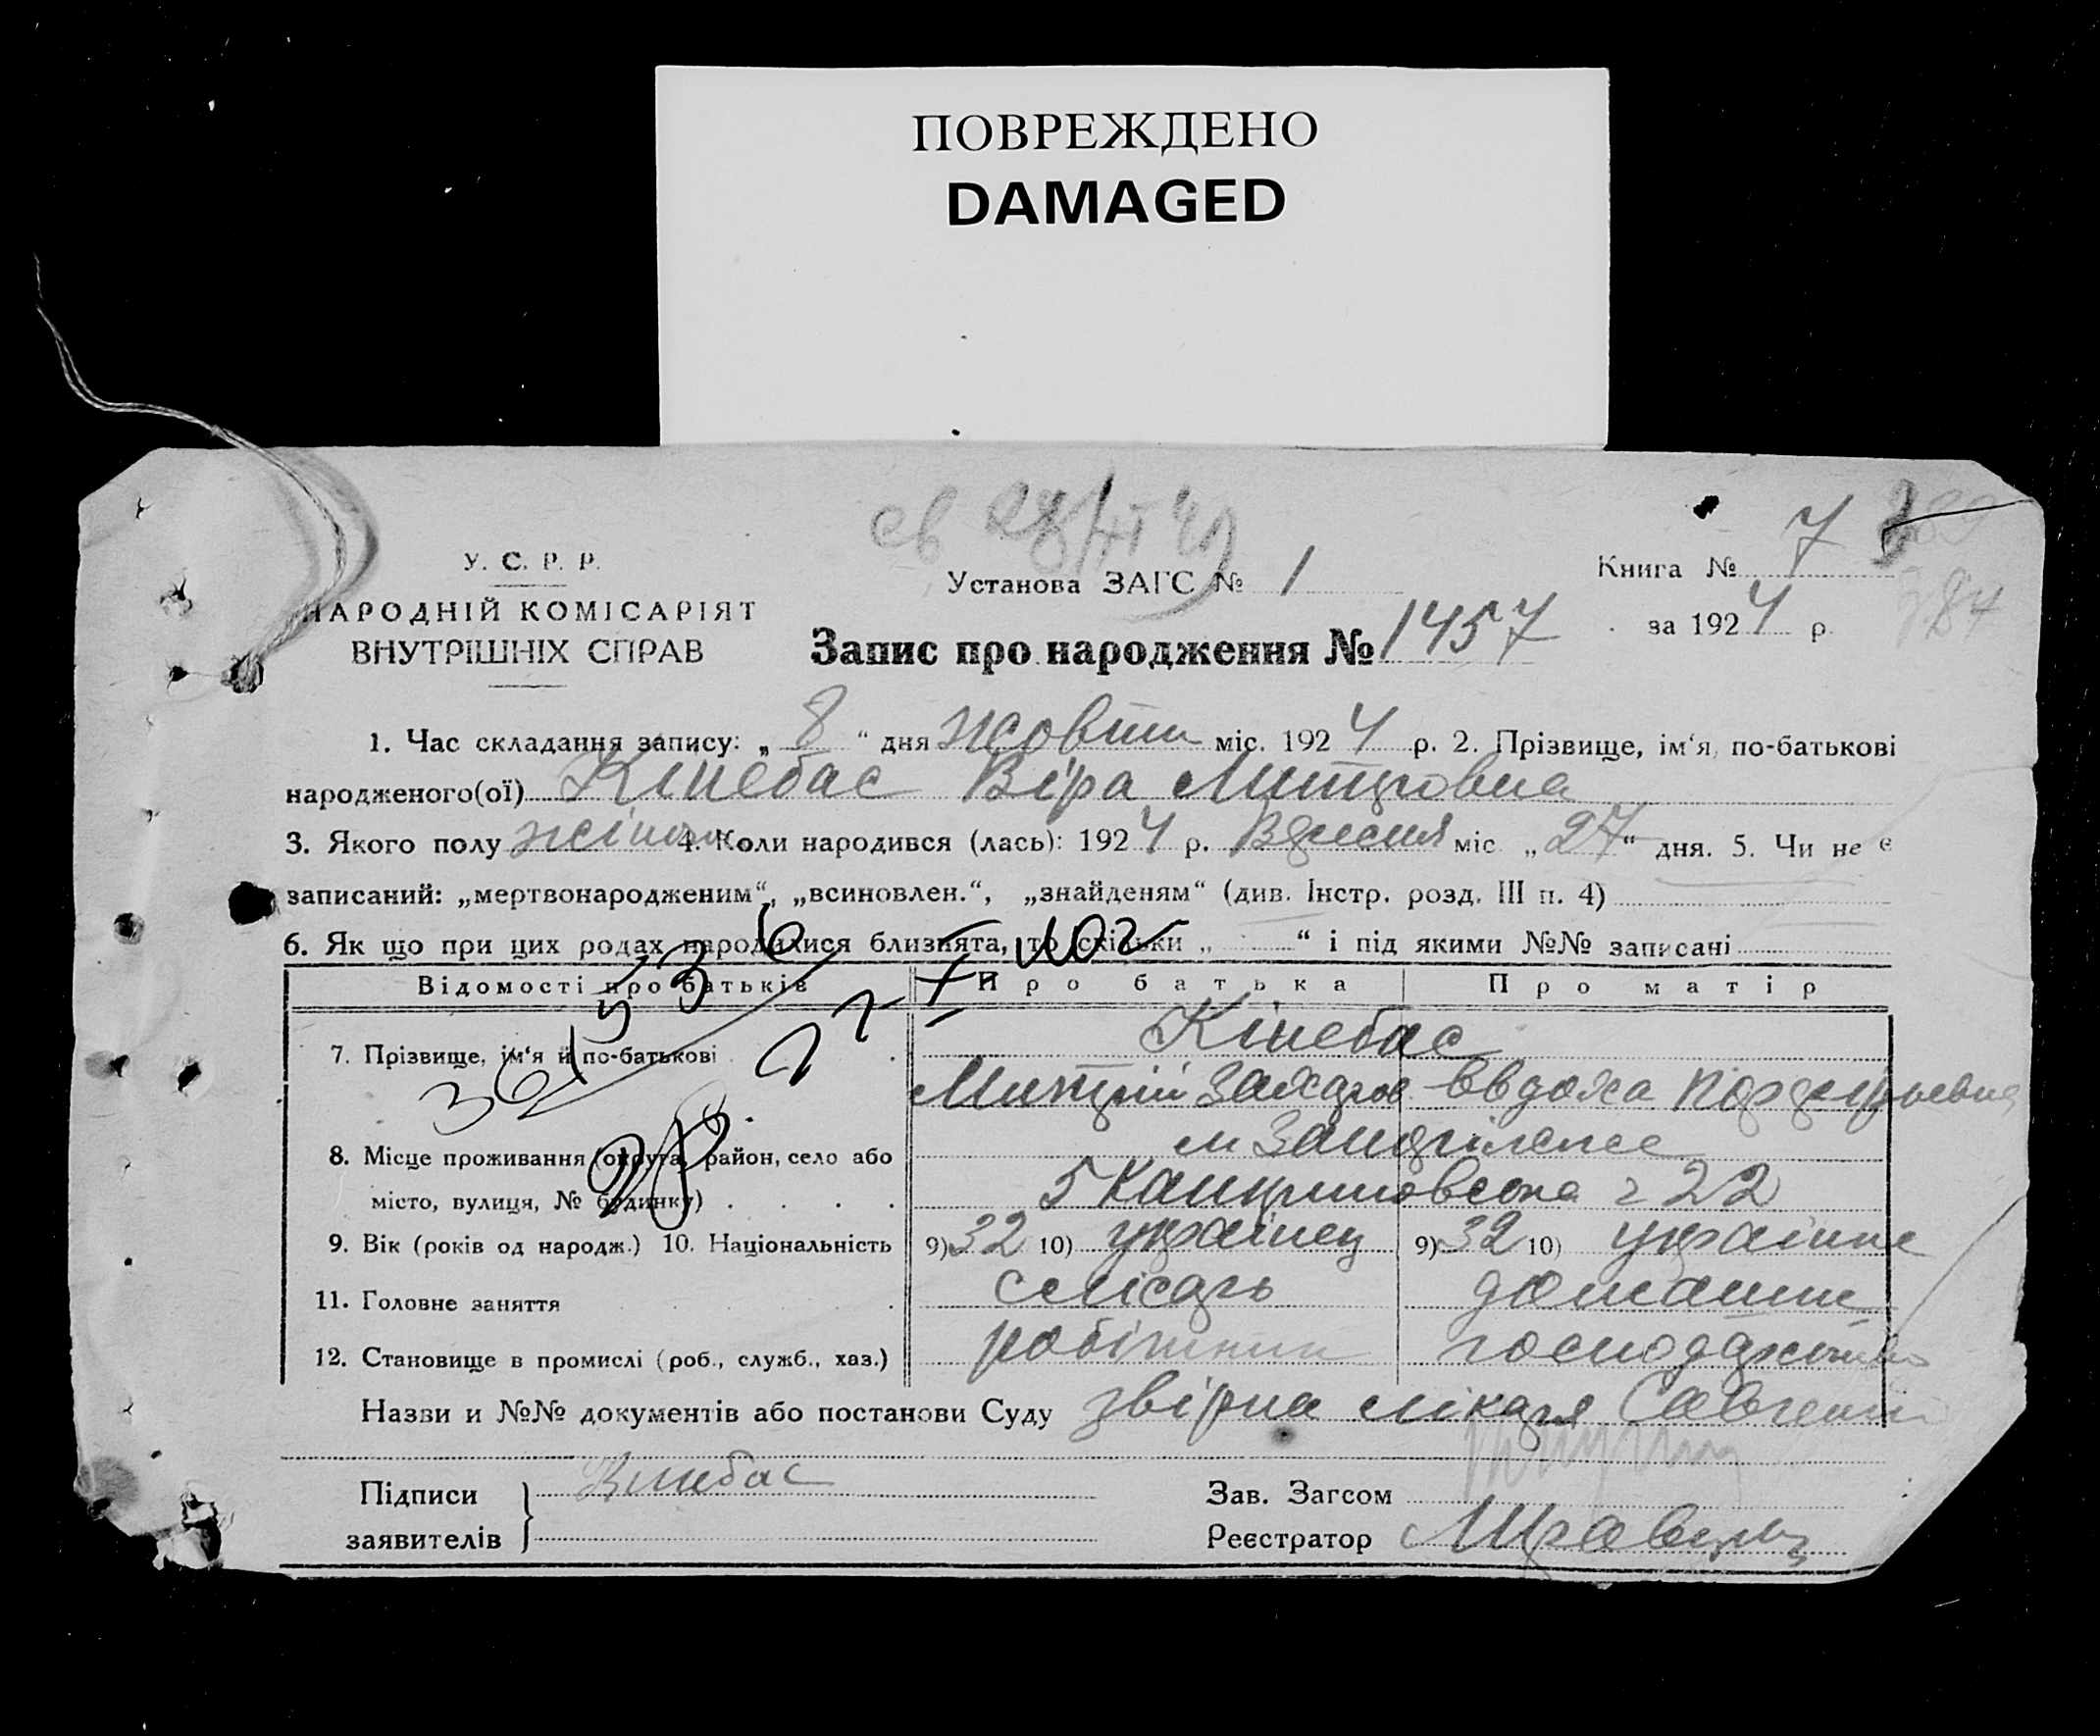 ПОВРЕЖДЕНО
DAMAGED
У. С. Р. Р.
НАРОДНІЙ КОМІСАРІЯТ
ВНУТРІШНІХ СПРАВ
Установа ЗАГС № 1
Книга № 7
за 1924 р.
Запис про народження № 1457
1. Час складання запису: „ 8 “ дня жовтн міс. 1924 р. 2. Прізвище, ім‘я, по-батькові
народженого(ої) Кінебас Віра Митровна
3. Якого полу жіноч 4. Коли народився (лась): 1924 р. Вересня міс. „ 27 “ дня. 5. Чи не є
записаний: „мертвонародженим“, „всиновлен.“, „знайденям“ (див. Інстр. розд. III п. 4)
6. Як що при цих родах народилися близнята, то скільки „ “ і під якими №№ записані
Відомості про батьків Про батька Про матір
7. Прізвище, ім‘я й по-батькові Кінебас
Митрій Захаров Евдоха
8. Місце проживання (округа, район, село або
місто, вулиця, № будинку) 22
9. Вік (років од народж.) 10. Національність 9) 32 10) українец 9) 32 10) українке
11. Головне заняття слісарь домашне
12. Становище в промислі (роб., служб., хаз.) робітник господарство
Назви и №№ документів або постанови Суду звірка лікаря
Підписи заявителів } Кинебас
Зав. Загсом
Реєстратор